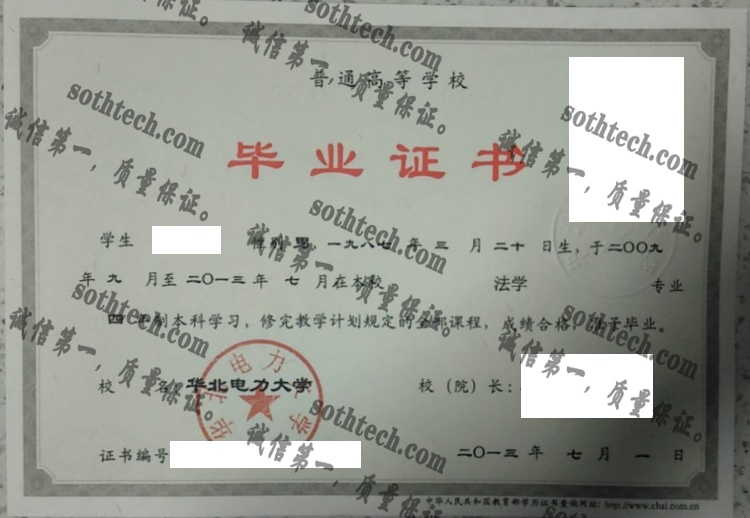 普通高等学校
毕业证书
学生 性别 男，一九八七 年 三 月 二十 日生，于二〇〇九
年 九 月至 二〇一三 年 七 月在本校 法学 专业
四 年制本科学习，修完教学计划规定的全部课程，成绩合格，准予毕业。
校 名：华北电力大学 校（院）长：
证书编号 二〇一三 年 七 月 一 日
中华人民共和国教育部学历证书查询网址：http://www.chsi.com.cn
华北电力大学
sothtech.com
诚信第一，质量保证。
sothtech.com
诚信第一，质量保证。
sothtech.com
诚信第一，质量保证。
sothtech.com
诚信第一，质量保证。
sothtech.com
诚信第一，质量保证。
sothtech.com
诚信第一，质量保证。
sothtech.com
诚信第一，质量保证。
sothtech.com
诚信第一，质量保证。